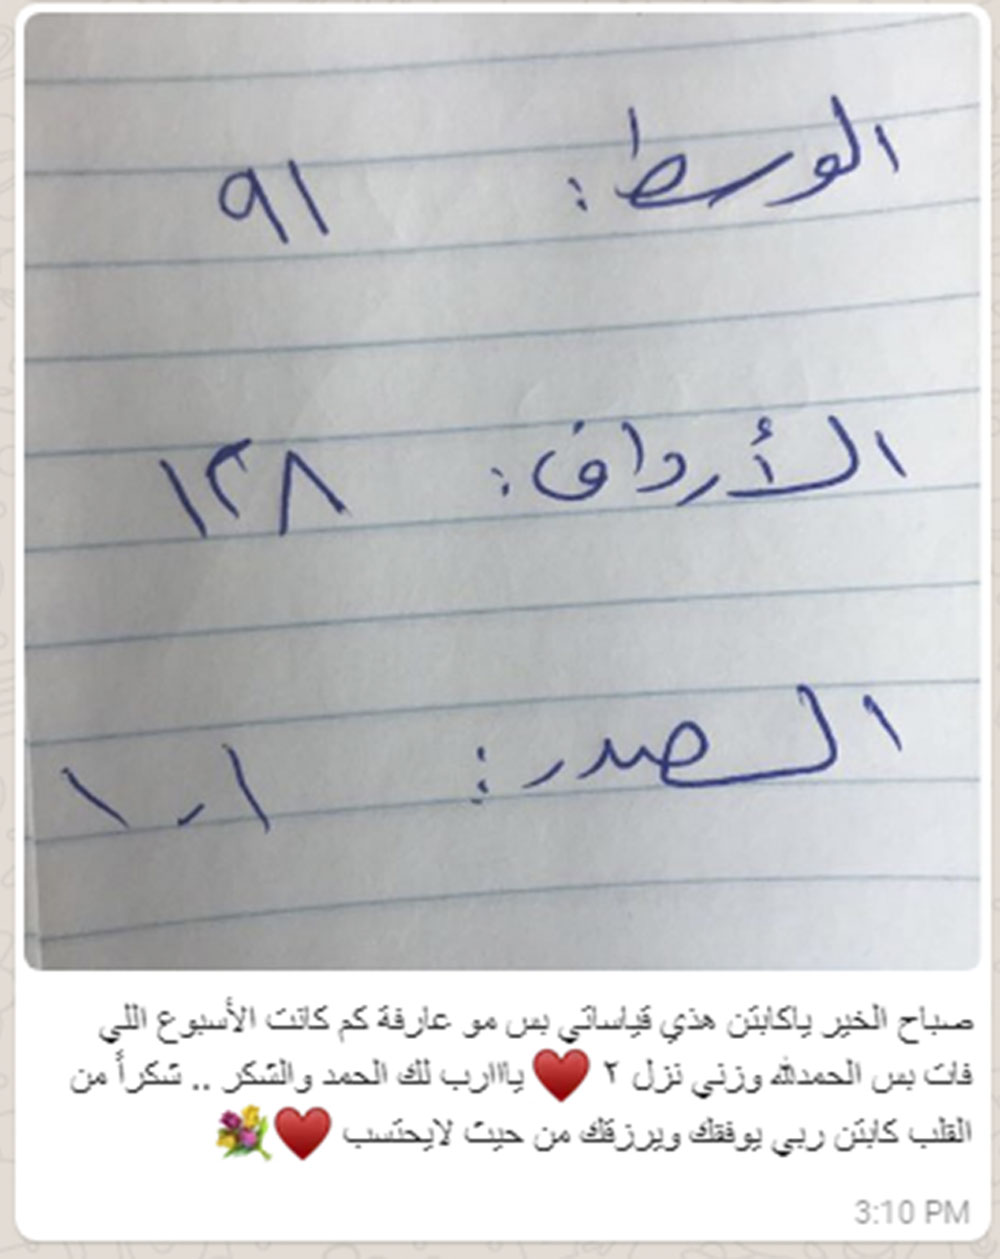 الوسط: ٩١
الأرداف: ١٢٨
الصدر: ١٠١
صباح الخير ياكابتن هذي قياساتي بس مو عارفة كم كانت الأسبوع اللي
فات بس الحمدلله وزني نزل ٢ ❤️ يااارب لك الحمد والشكر .. شكراً من
القلب كابتن ربي يوفقك ويرزقك من حيث لايحتسب ❤️💐
3:10 PM